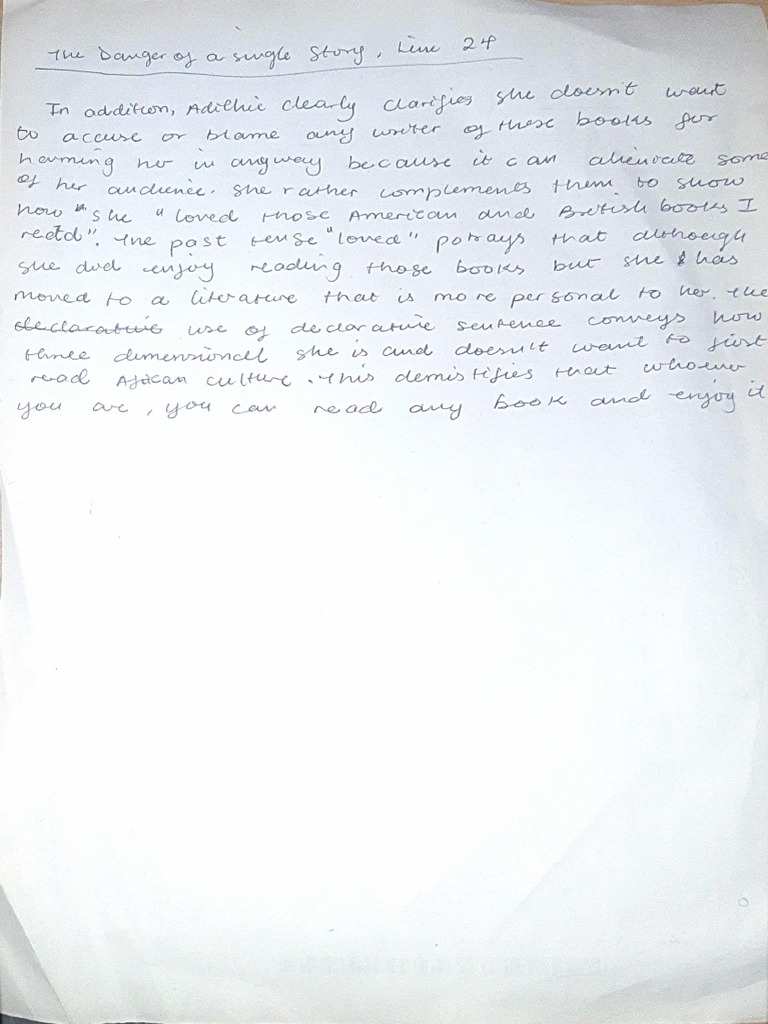 The Danger of a single Story, Line 24
In addition, Adithie clearly clarifies she doesn't want
to accuse or blame any writer of these books for
harming her in anyway because it can alienate some
of her audience. She rather complements them to show
how "she "loved those American and British books I
read". The past tense "loved" potrays that although
she did enjoy reading those books but she has
moved to a literature that is more personal to her. The
declarative use of declarative sentence conveys how
three dimensionall she is and doesn't want to just
read African culture. This demistifies that whoever
you are, you can read any book and enjoy it